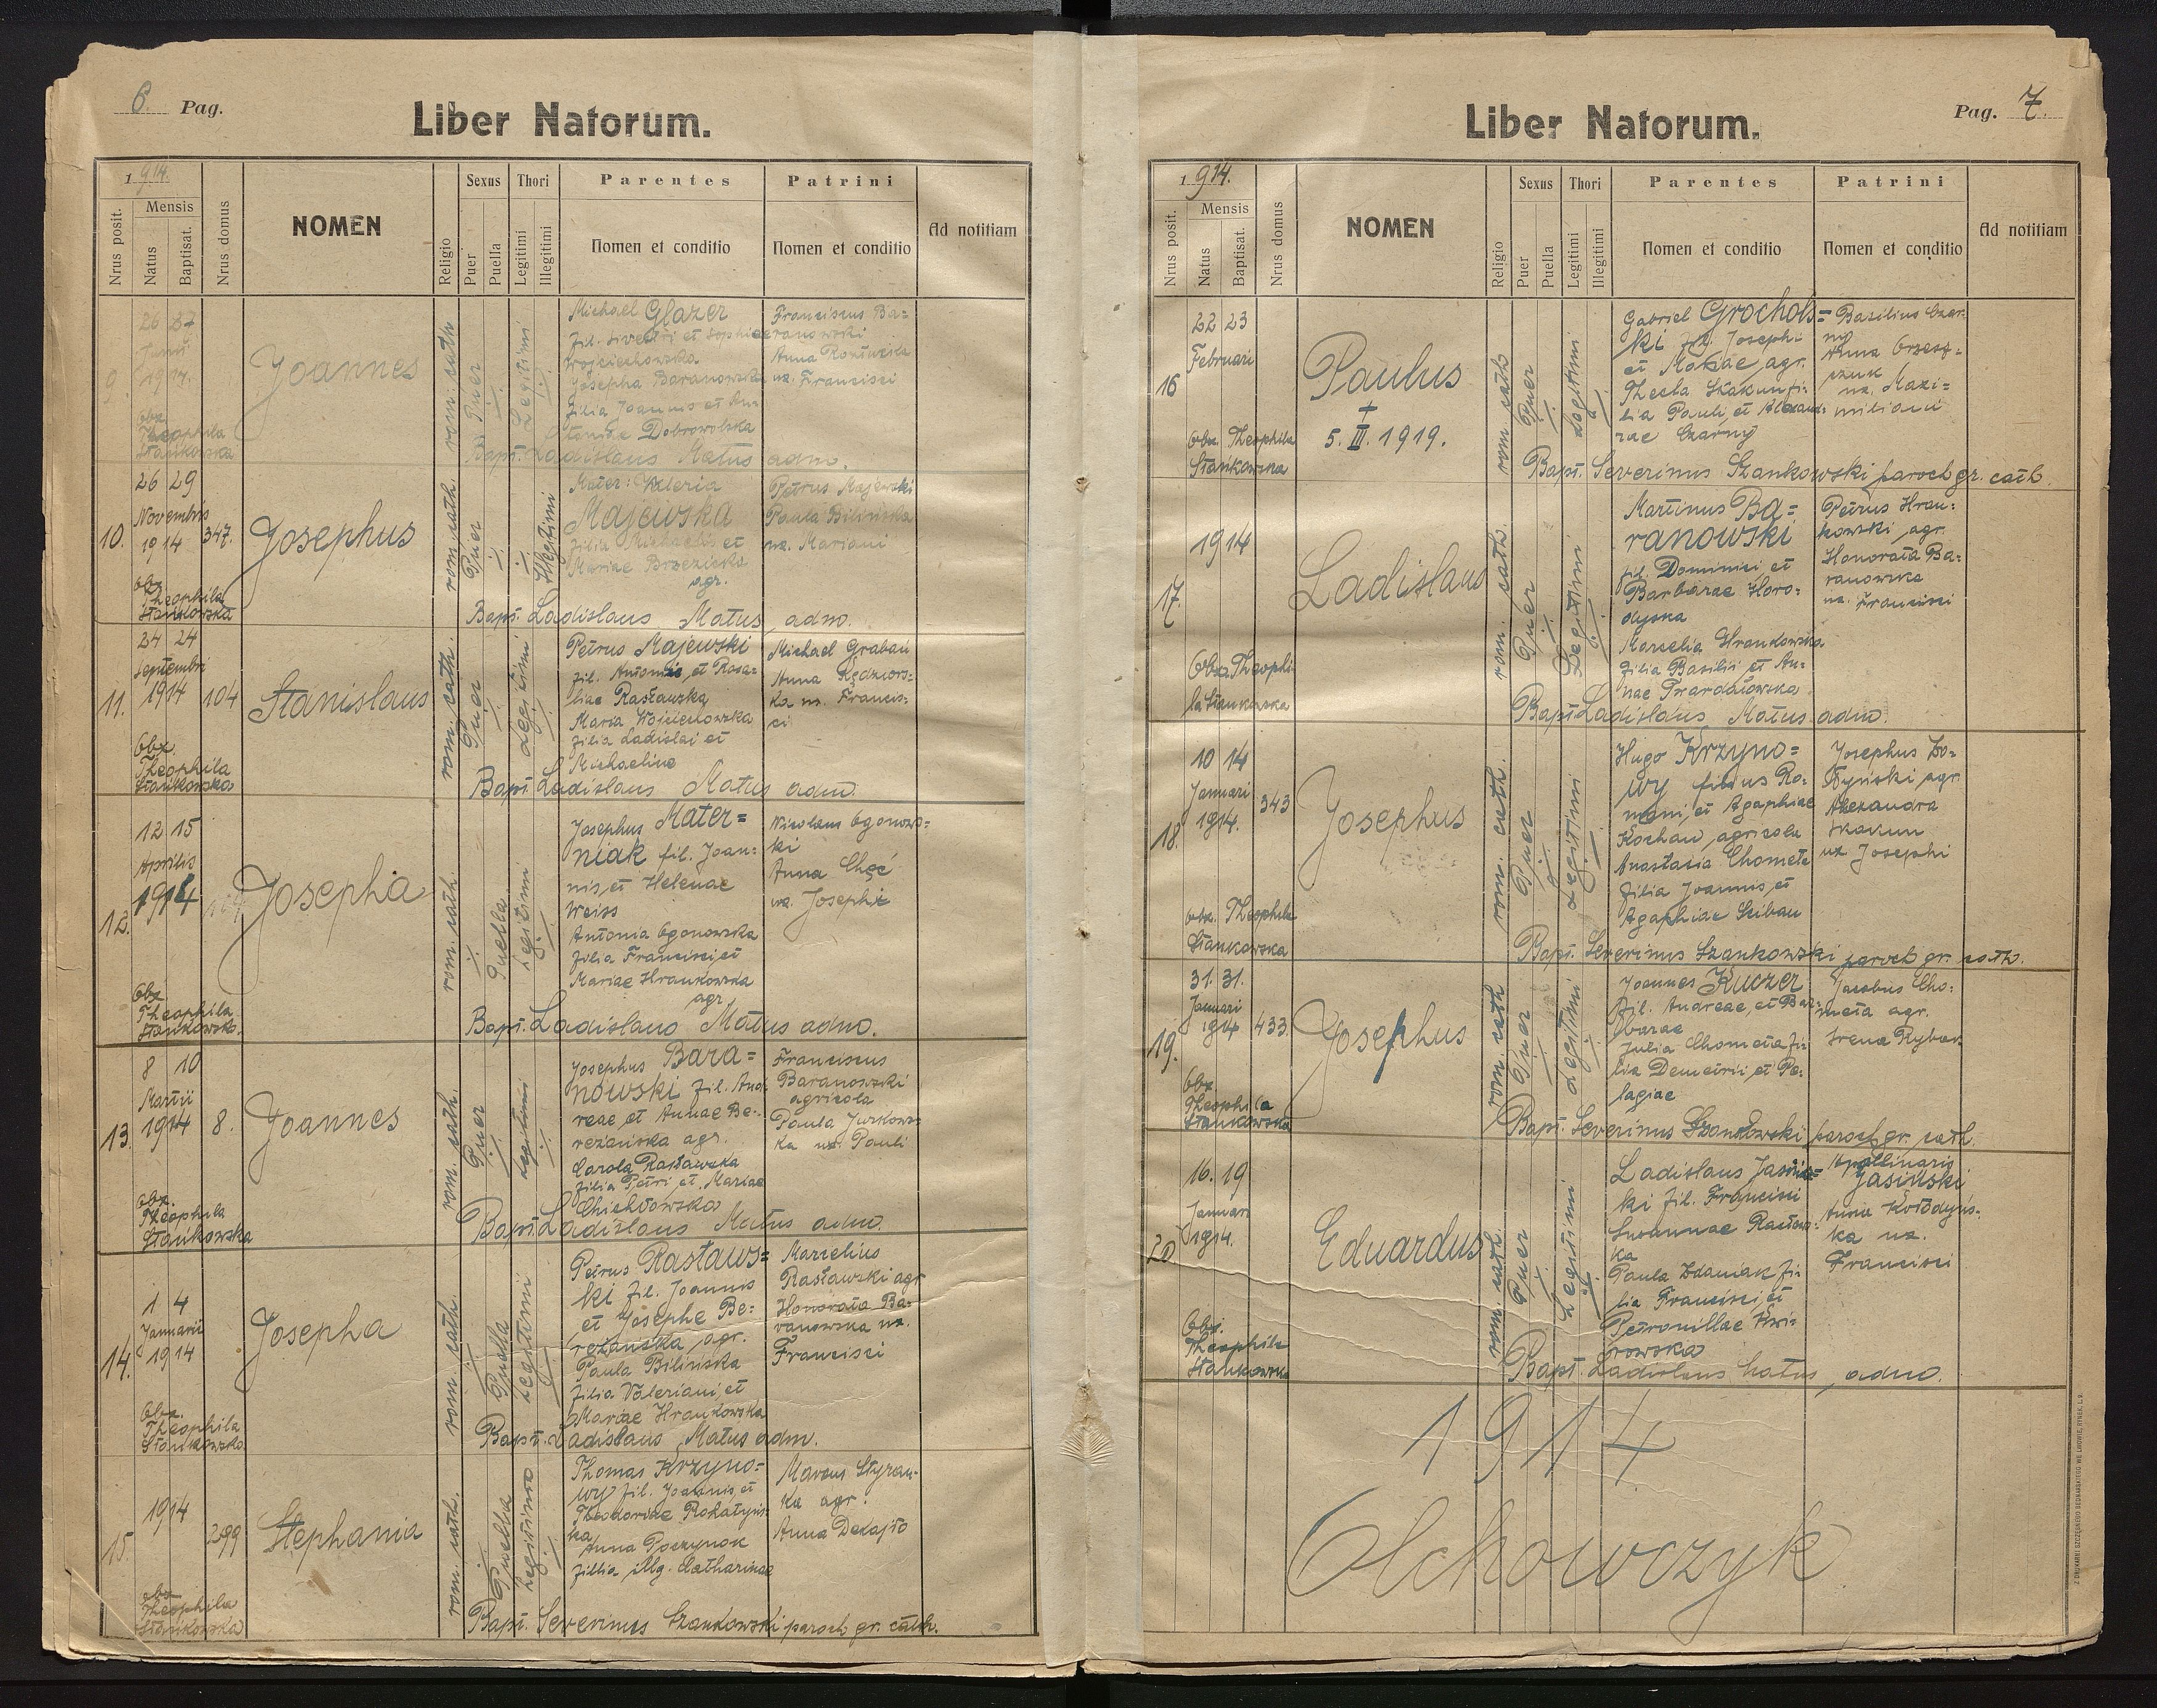 6. Pag.
Liber Natorum.
1914.
Nrus posit.
Mensis
Natus
Baptisat.
Nrus domus
NOMEN
Religio
Sexus
Puer
Puella
Thori
Legitimi
Illegitimi
Parentes
Nomen et conditio
Patrini
Nomen et conditio
Ad notitiam
9.
26 27
Junii
1914.
obx
Theophila
Stankowska
Joannes
rom. cath
Puer
Legitimi
Michael Glazer
fil. Sivestri et Sophiae
Wojciechowska
Josepha Baranowska
filia Joannis et An-
toniae Dobrowolska
Franciscus Ba=
ranowski
Anna
ux. Francisci
Bapt. Ladislaus Matus adm.
10.
26 29
Novembris
1914
347.
obx
Theophila
Stankowska
Josephus
rom. cath.
Puer
Illegitimi
Mater: Valeria
Majewska
filia Michaelis et
Mariae Brzezicka
agr.
Petrus Majewski
Paula Bilińska
ux. Mariani
Bapt. Ladislaus Matus, adm.
11.
24 24
Septembri
1914
104
Obx.
Theophila
Stankowska
Stanislaus
rom. cath.
Puer
Legitimi
Petrus Majewski
fil. Antonii, et Rosa=
liae Rastawska
Maria Wojciechowska
filia Ladislai et
Michaeline
Michael Graban
Anna Kędziors=
ka ux. Francis-
ci
Bapt. Ladislaus Matus adm.
12.
12 15
Aprilis
1914
Obx
Theophila
Stankowska.
Josepha
rom. cath.
Puella
Legitimi
Josephus Mater=
niak fil. Joan=
nis, et Helenae
Weiss
Antonia Ogonowska
filia Francisci, et
Mariae Hrankowska
agr.
Nicolaus Ogonows=
ki
Anna Chęć
ux. Josephi
Bapt. Ladislaus Matus adm.
13.
8 10
Martii
1914
8.
obx.
Theophila
Stankowska
Joannes
rom. cath.
Puer
Legitimi
Josephus Bara=
nowski fil. And-
reae, et Annae Be-
rezańska agr.
Carola Rastawska
filia Petri et Mariae
Chichłowska
Franciscus
Baranowski
agricola
Paula Jurkows-
ka ux. Pauli
Bapt. Ladislaus Matus adm.
14.
1 4
Januarii
1914
Obx.
Theophila
Stankowska
Josepha
rom. cath.
Puella
Legitimi
Petrus Rastaws=
ki fil. Joannis
et Josephe Be=
rezańska, agr.
Paula Bilińska
filia Valeriani, et
Mariae Hrankowska
Marcelius
Rastawski agr
Honorata Ba=
ranowska ux.
Francisci
Bapt. Ladislaus Matus adm.
15.
1914
299
obx
Theophila
Stankowska
Stephania
rom. cath.
Puella
Legitimo
Thomas Krzyno=
wy fil. Joannis, et
Theodoriae Rohatyns=
ka
Anna
fillia illg. Catharinae
Marcus Styran-
ka agr.
Anna Dekajło
Bapt. Severinus Szankowski paroch gr. cath.
Pag. 7.
Liber Natorum.
1914.
Nrus posit.
Mensis
Natus
Baptisat.
Nrus domus
NOMEN
Religio
Sexus
Puer
Puella
Thori
Legitimi
Illegitimi
Parentes
Nomen et conditio
Patrini
Nomen et conditio
Ad notitiam
16
22 23
Februari
Obx. Theophila
Stankowska
Paulus
† 5. III. 1919.
rom cath
Puer
Legitimi
Gabriel Grochols=
ki fil. Josephi
et Mariae, agr.
Thecla Skakun fi-
lia Pauli, et Alexand-
rae Czarny
Basilius Czar-
ny
Anna
ux. Maxi=
miliani
Bapt. Severinus Szankowski paroch gr. cath.
17.
1914
Obx. Theophi-
la Stankowska
Ladislaus
rom. cath.
Puer
Legitimi
Martinus Ba=
ranowski
fil. Dominici et
Barbarae Horo-
dyska
Marcelia Hrankowska
filia Basilii et An-
nae Twardatowska
Petrus Hran=
kowski, agr.
Honorata Ba=
ranowska
ux. Francisci
Bapt. Ladislaus Matus adm.
18.
10 14
Januari
1914.
343
Obx. Theophila
Stankowska
Josephus
rom. cath.
Puer
Legitimi
Hugo Krzyno=
wy filius Ro-
mani, et Agaphiae
Kochan, agricola
Anastasia Chometa
filia Joannis, et
Agaphiae Sciban
Josephus
agr
Alexandra
Skakun
ux Josephi
Bapt. Severinus Szankowski paroch gr. cath.
19.
31. 31.
Januari
1914
433.
Obx.
Theophila
Stankowska
Josephus
rom. cath
Puer
Legitimi
Joannes Kuczer
fil. Andreae, et Bar-
barae
Julia Chometa fi-
lia Demetrii, et Pe-
lagiae
Jacobus Cho-
meta agr.
Irena Rybar
Bapt. Severinus Szankowski paroch gr. cath.
20
16. 19
Januari
1914.
Obx.
Theophila
Stankowska
Eduardus
rom. cath.
Puer
Legitimi
Ladislaus Jasińs=
ki fil. Francisci
Susannae Rastaws-
ka
Paula Zdaniak fi-
lia Francisci, et
Petronillae Kwi-
rowska
Apollinaris
Jasiński
Anna Kołodyńs-
ka ux.
Francisci
Bapt. Ladislaus Matus, adm.
1914
Olchowczyk